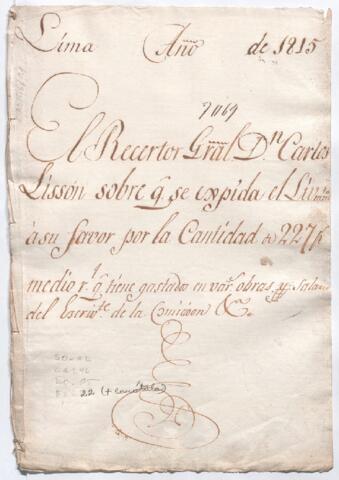 Lima Año de 1815
7069
El Recertor Gral Dn Carlos
Lissón sobre q se expida el Lib.mto
a su favor por la Cantidad de 227 p
medio r.l q tiene gastados en var.s obras, y Salario
del Escriv.te de la Comicion &.a
22 (+ carátula)